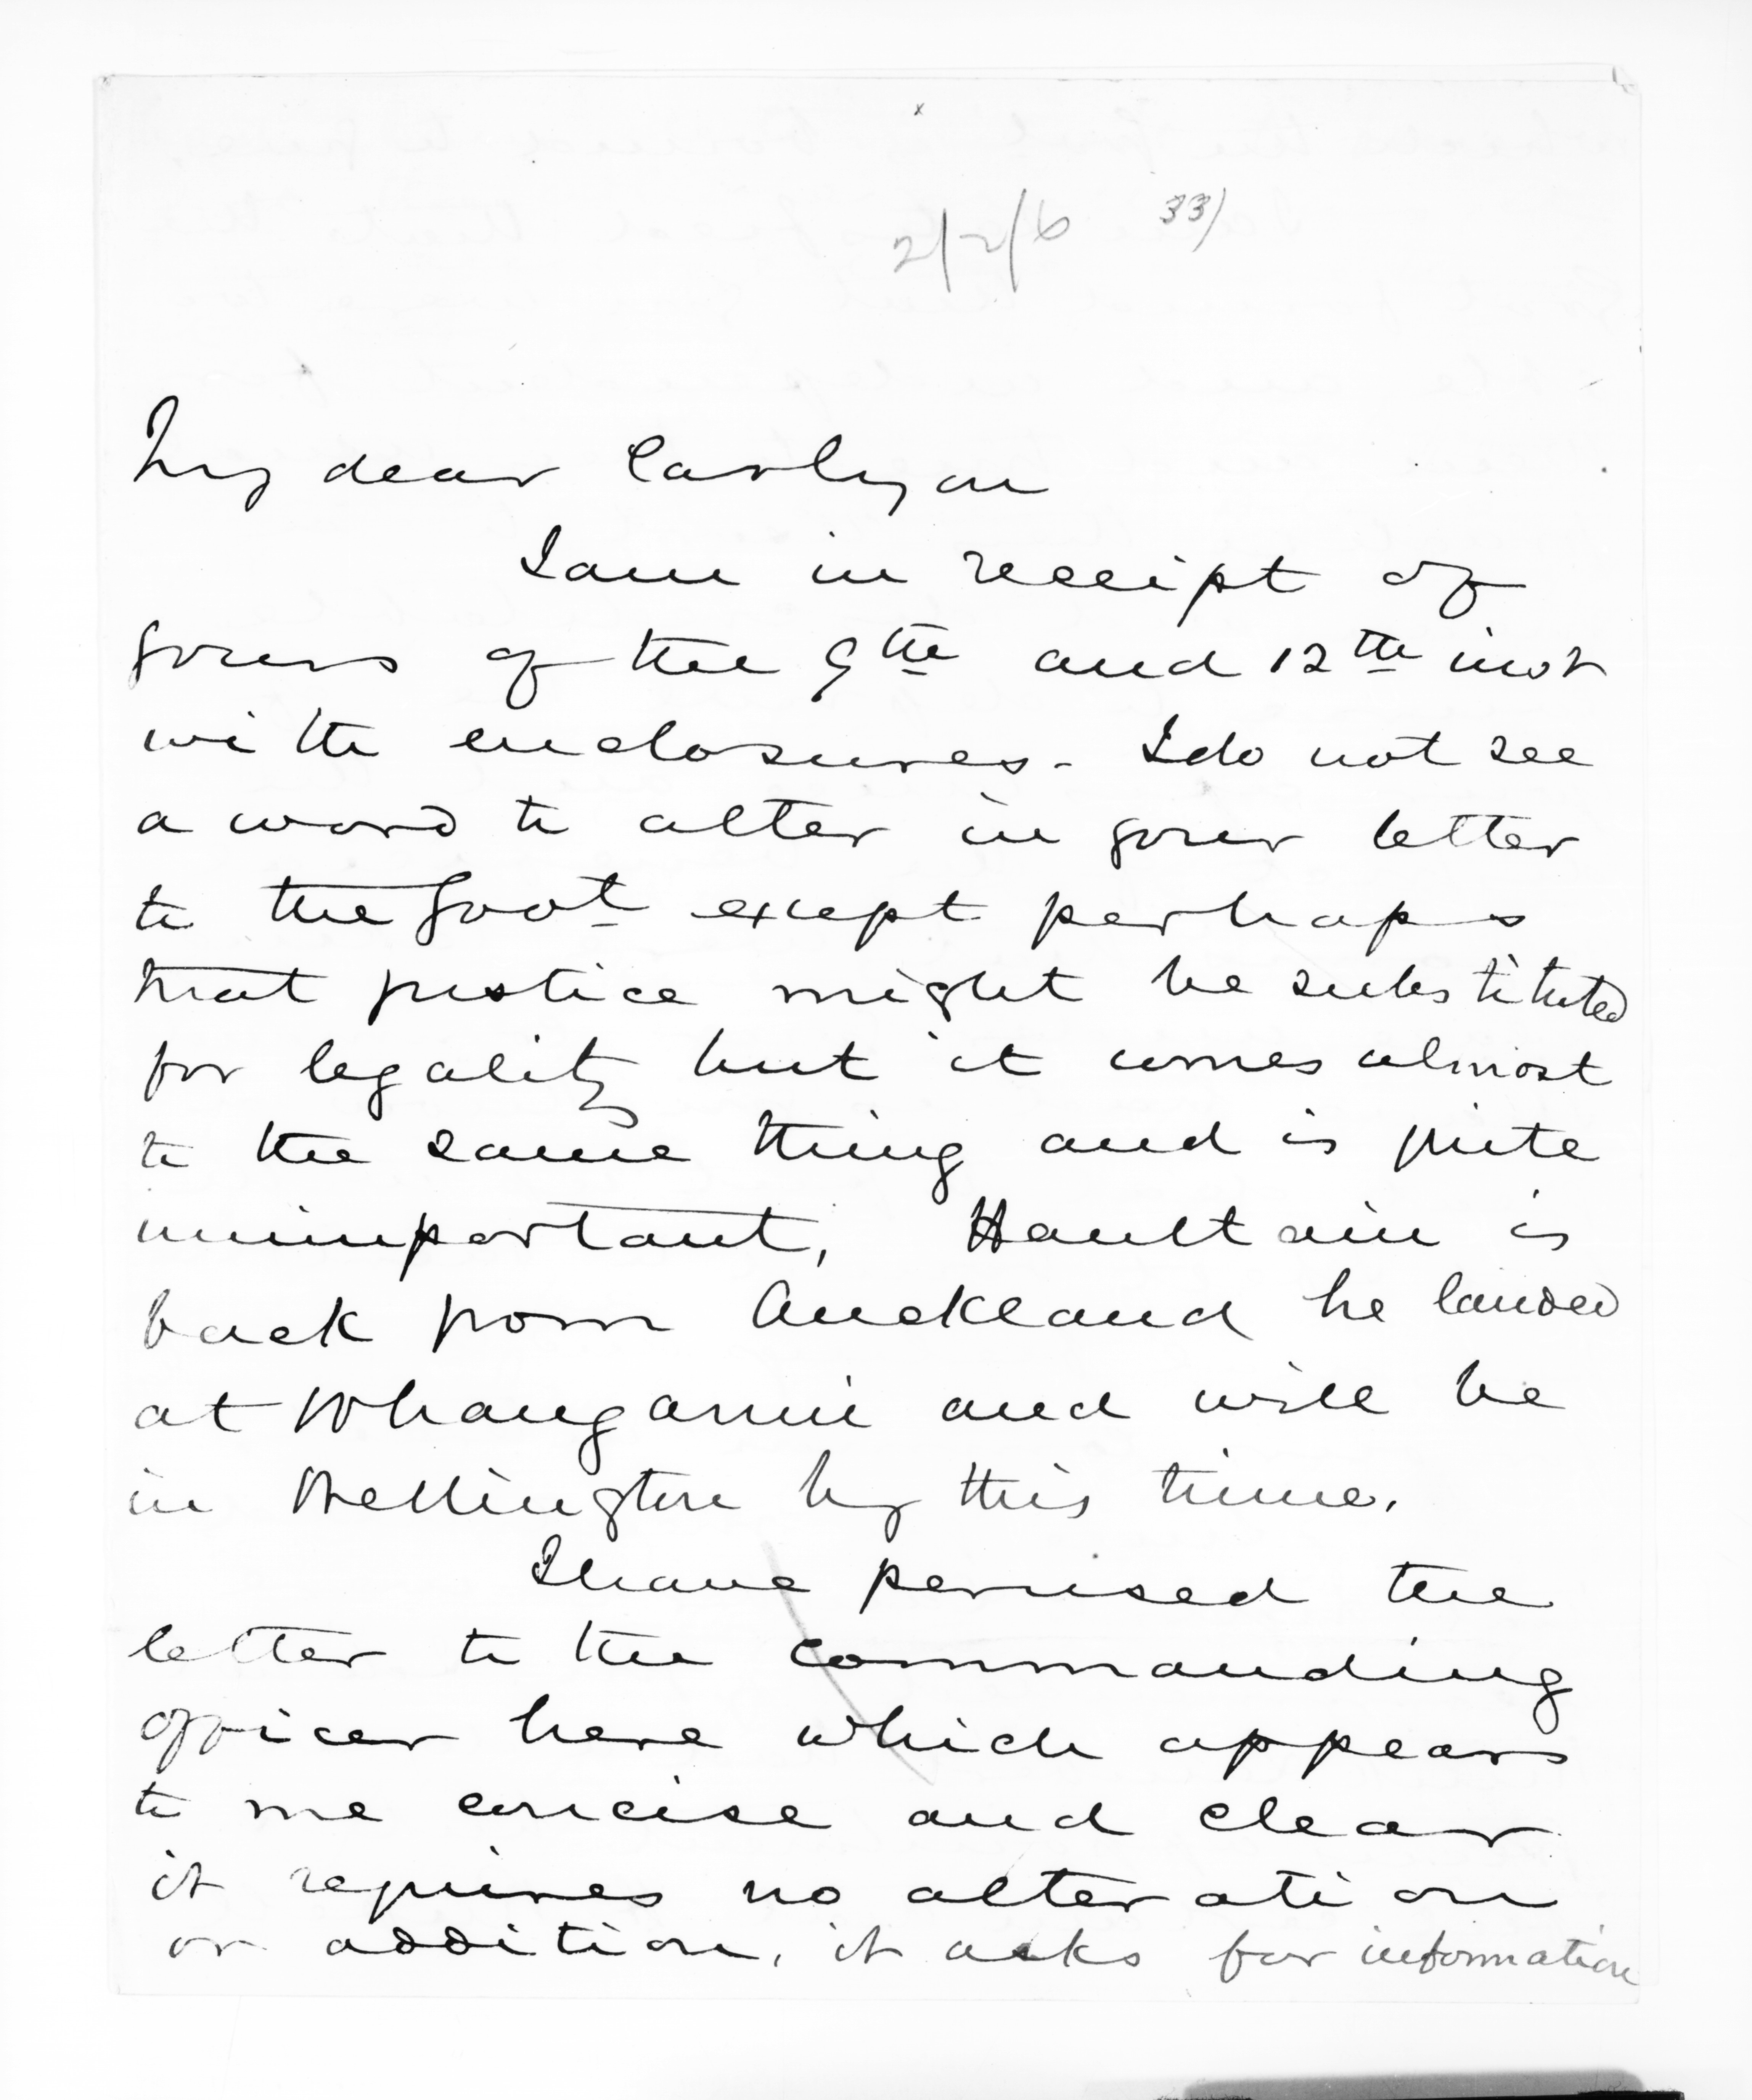 2/2/6 33)
My dear Carlyon
I am in receipt of
yours of the 9th and 12th inst
with enclosures - I do not see
a word to alter in your letter
to the Govt except perhaps
that justice might be substituted
for legality but it comes almost
to the same thing and is quite
unimportant, Haultain is
back from Auckland he landed
at Whanganui and will be
in Wellington by this time.
I have perused the
letter to the commanding
officer here which appears
to me concise and clear
it requires no alteration
or addition, it asks for information